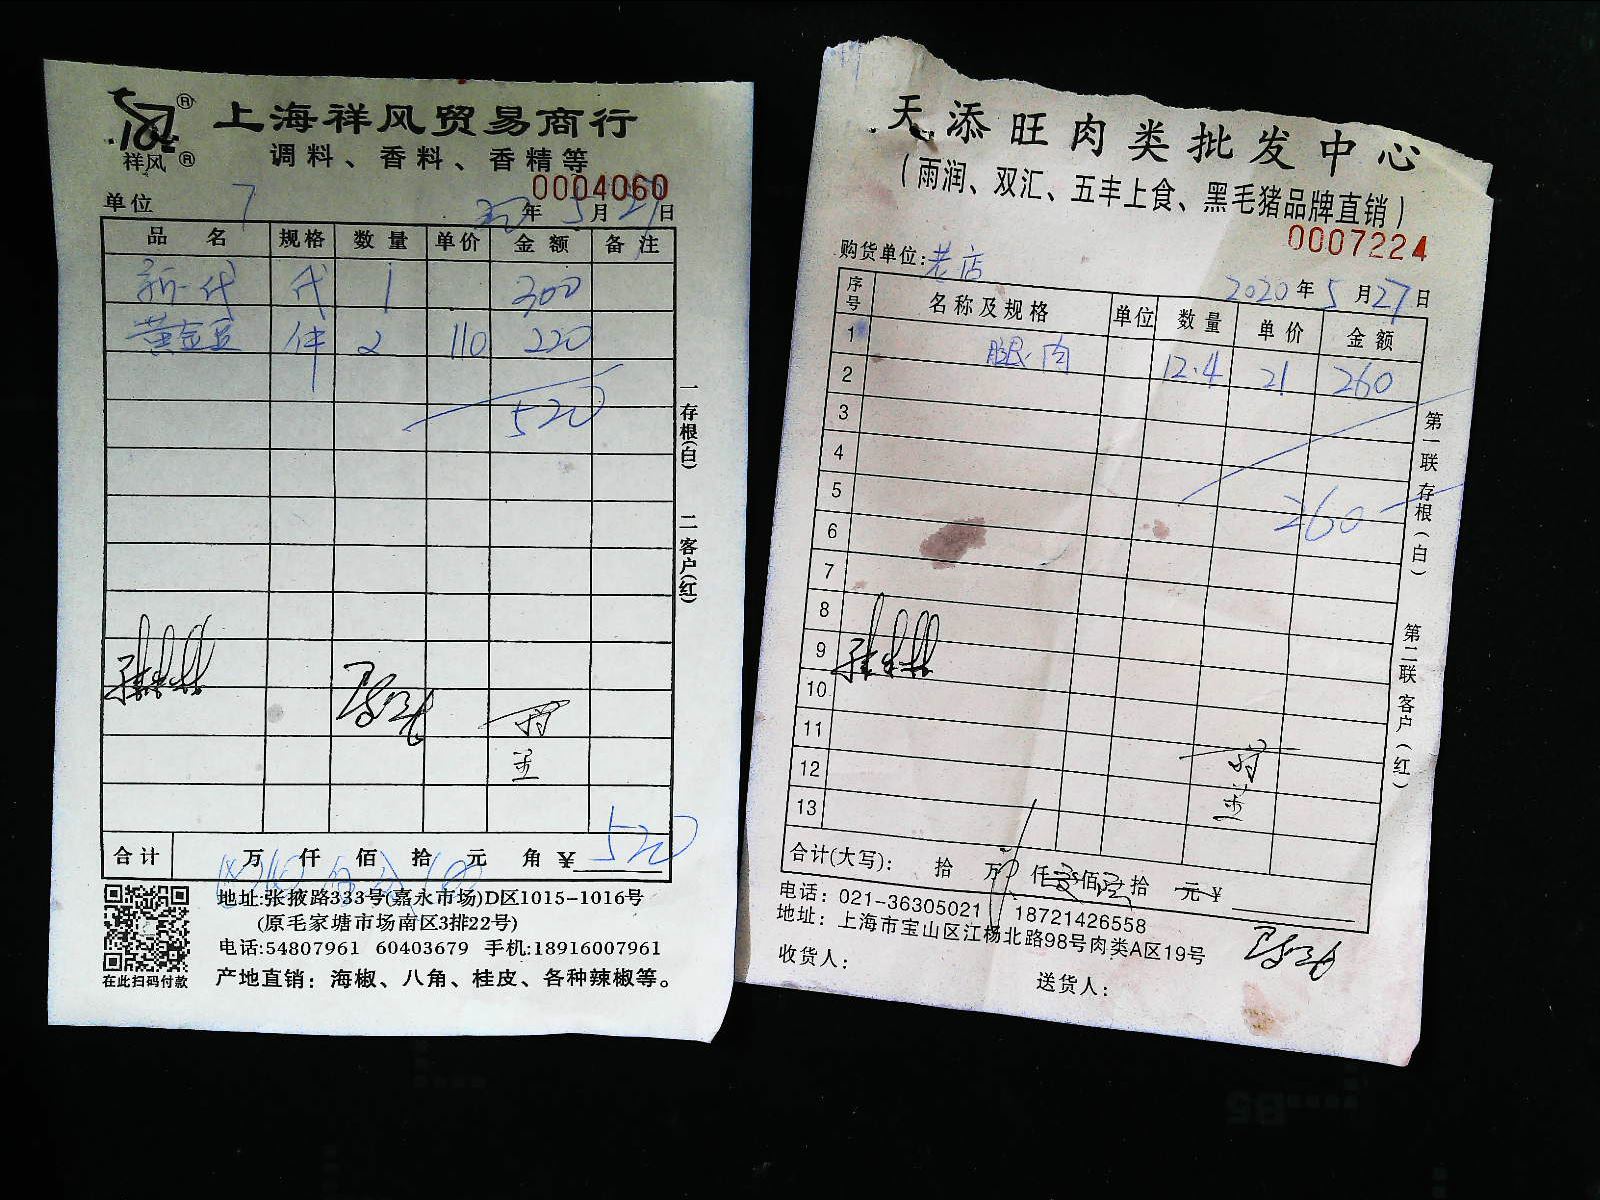 上海祥风贸易商行
祥风
调料、香料、香精等
0004060
单位 7 年 5月27日
品名 规格 数量 单价 金额 备注
新一代 代 1 300
黄金豆 件 2 110 220
520
一存根(白) 二客户(红)
合计 万 仟 佰 拾 元 角 ¥ 520
地址:张掖路333号(嘉永市场)D区1015-1016号
(原毛家塘市场南区3排22号)
电话:54807961 60403679 手机:18916007961
在此扫码付款
产地直销：海椒、八角、桂皮、各种辣椒等。
天添旺肉类批发中心
(雨润、双汇、五丰上食、黑毛猪品牌直销)
0007224
购货单位:老店
2020年5月27日
序号 名称及规格 单位 数量 单价 金额
1 腿肉 12.4 21 260
2
3
4
5
260
6
7
8
9
10
11
12
13
第一联 存根(白) 第二联 客户(红)
合计(大写): 拾 万 仟 佰 拾 元 ¥
电话：021-36305021 18721426558
地址：上海市宝山区江杨北路98号肉类A区19号
收货人：
送货人：